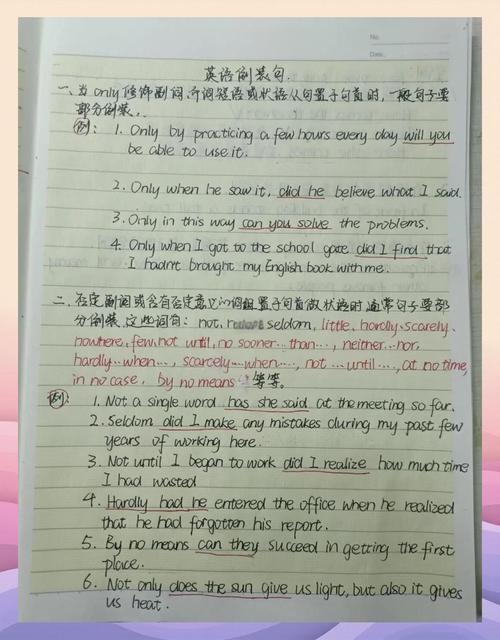 No.
Date.
英语倒装句.
一、当only修饰副词,介词短语或状语从句置于句首时,一般句子要
部分倒装.
例: 1. Only by practicing a few hours every day will you
be able to use it.
2. Only when he saw it, did he believe what I said.
3. Only in this way can you solve the problems.
4. Only when I got to the school gate did I find that
I hadn't brought my English book with me.
二. 否定副词或含有否定意义的词组置于句首做状语时通常句子要部
分倒装.这些词有: not, seldom, little, hardly, scarely,
nowhere, few, not until, no sooner...than..., neither...nor,
hardly...when..., scarcely...when..., not ...until..., at no time,
in no case, by no means 等等。
例: 1. Not a single word has she said at the meeting so far.
2. Seldom did I make any mistakes during my past few
years of working here.
3. Not until I began to work did I realize how much time
I had wasted
4. Hardly had he entered the office when he realized
that he had forgotten his report.
5. By no means can they succeed in getting the first
place.
6. Not only does the sun give us light, but also it gives
us heat.